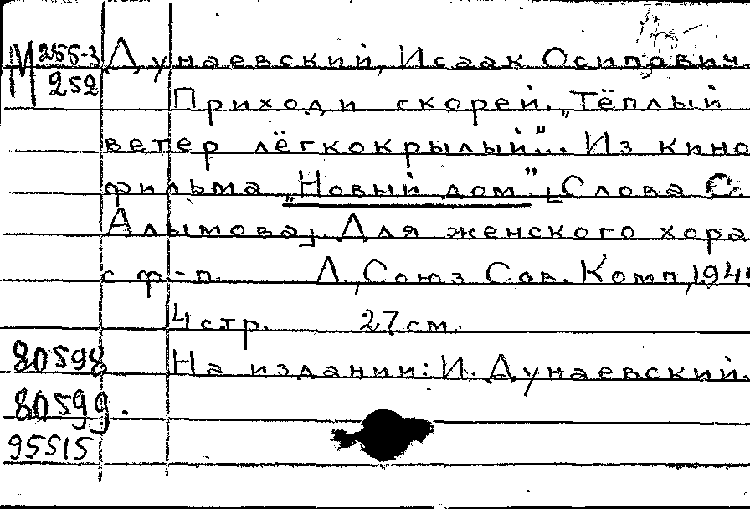 М 255-3
252
Дунаевский, Исаак Осипович.
Приходи скорей. „Тёплый
ветер лёгкокрылый”... Из кино
фильма „Новый дом”. [Слова С.
Алымова]. Для женского хора
с ф-п. Л., Союз Сов. Комп.,
4 стр. 27 см.
80598 На издании: И. Дунаевский.
80599.
95515